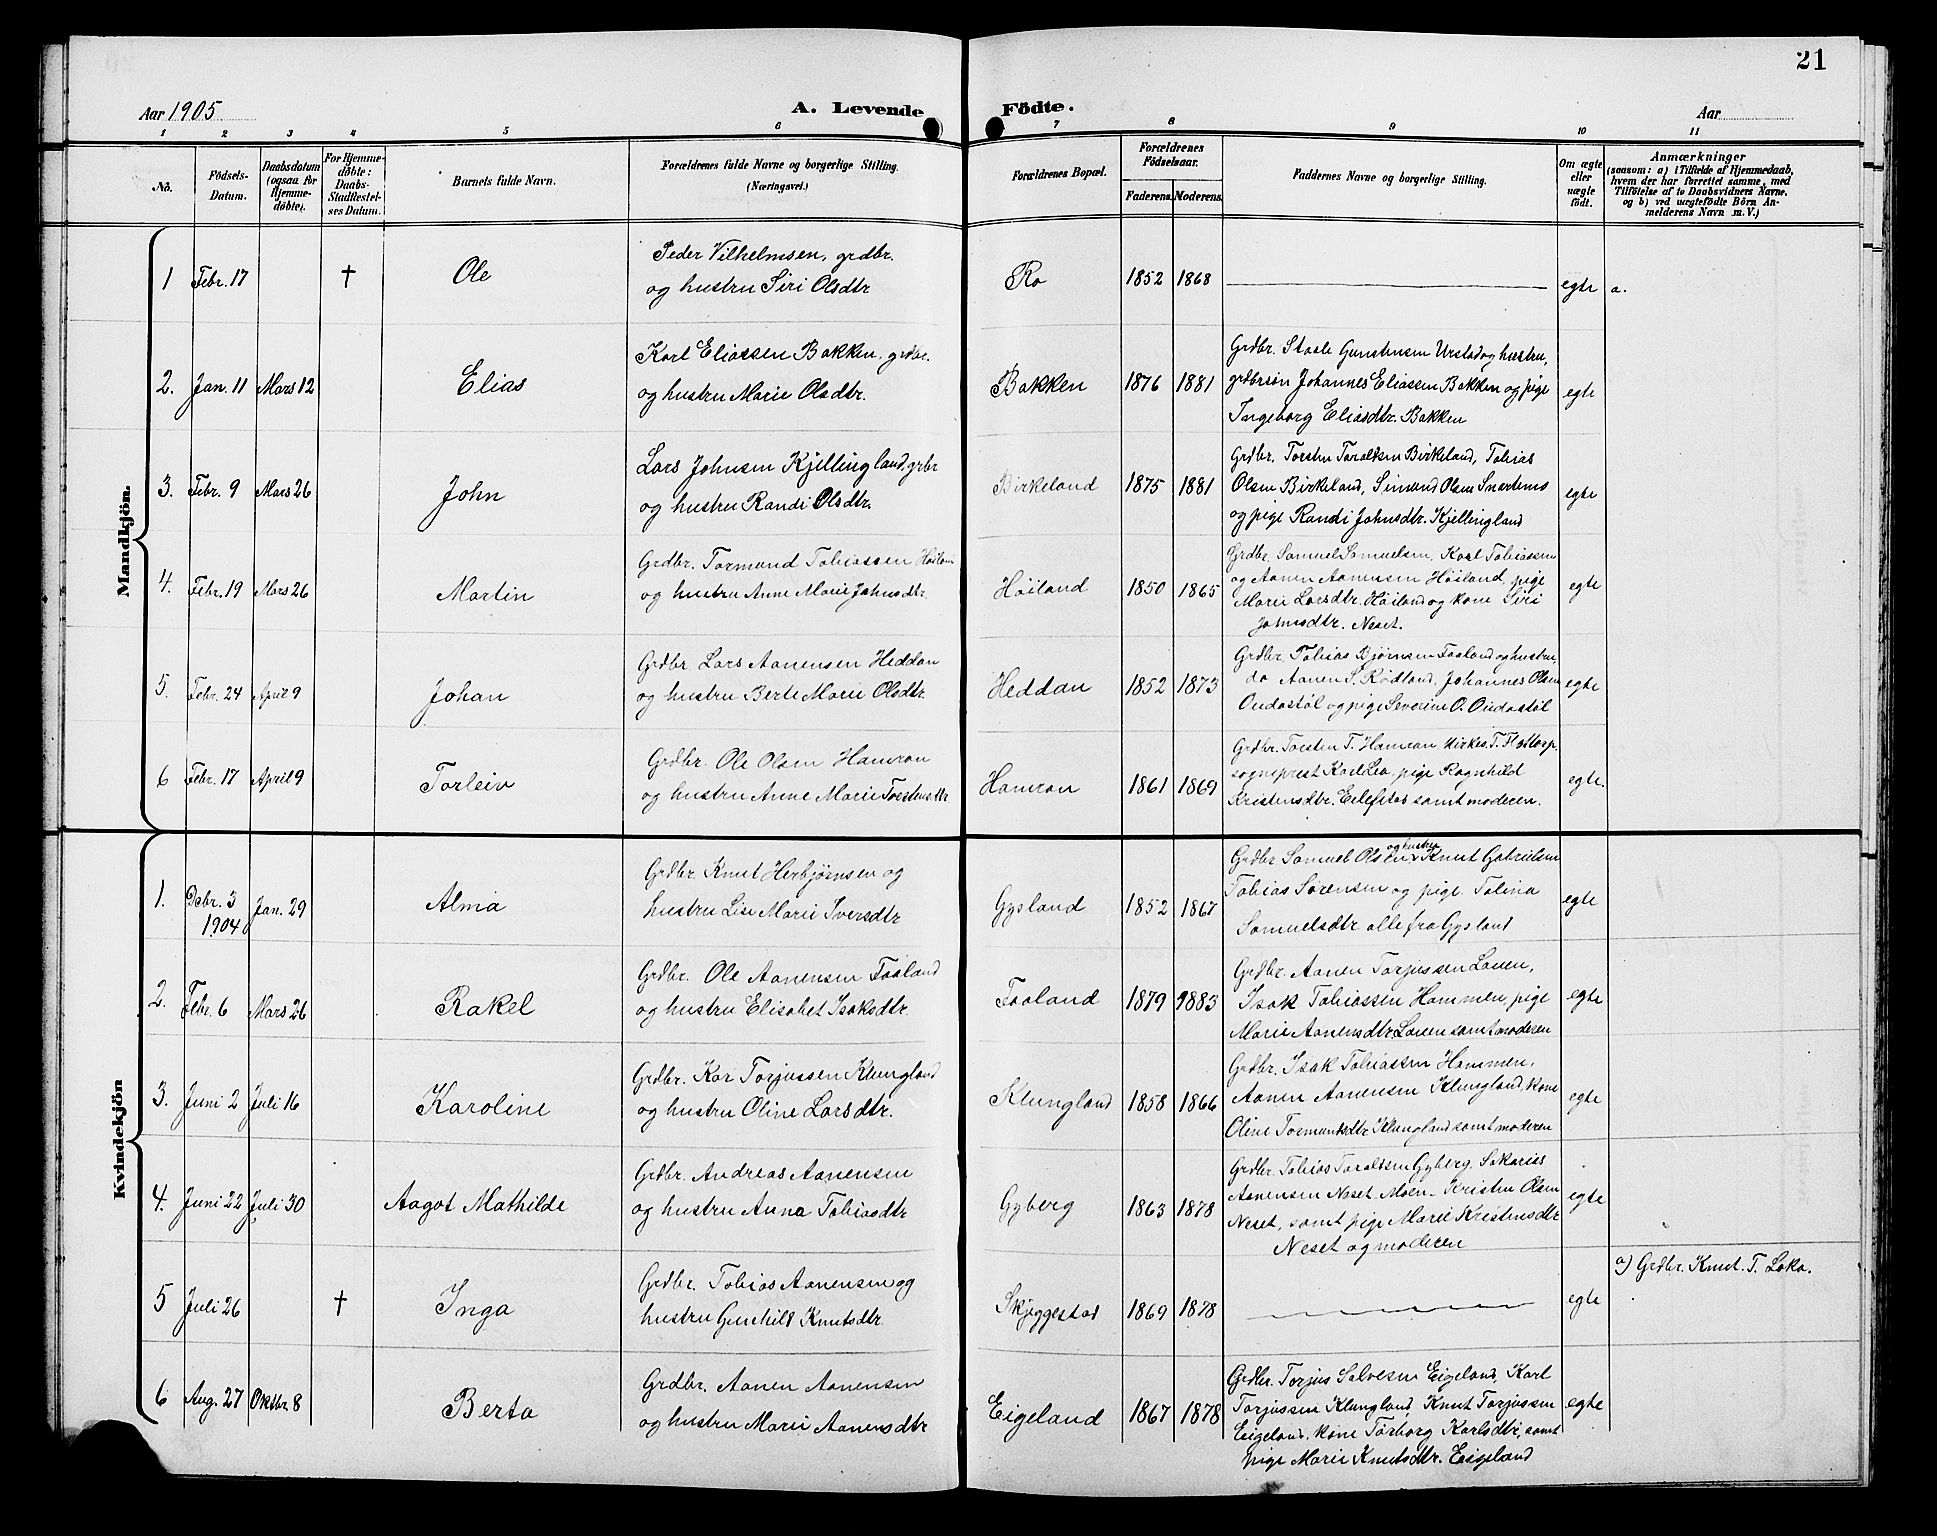 21
Aar 1905
A. Levende Födte.
Aar
1 2 3 4 5 6 7 8 9 10 11
No.
Födsels-Datum.
Daabsdatum (ogsaa for Hjemme-döbte).
For Hjemme-döbte: Daabs-Stadfæstel-ses Datum.
Barnets fulde Navn.
Forældrenes fulde Navne og borgerlige Stilling.
(Næringsvei.)
Forældrenes Bopæl.
Forældrenes Födselsaar.
Faderens. Moderens.
Faddernes Navne og borgerlige Stilling.
Om ægte eller uægte födt.
Anmærkninger
(saasom: a) i Tilfælde af Hjemmedaab, hvem der har forrettet samme, med Tilföielse af to Daabsvidners Navne, og b) ved uægtefödte Börn An-melderens Navn m. V.)
Mandkjön.
1 Febr. 17 † Ole
Peder Vilhelmsen, grdbr.
og hustru Siri Olsdtr
Ro 1852 1868 egte a.
2. Jan. 11 Mars 12 Elias
Karl Eliassen Bakken, grdbr.
og hustru Marie Olsdtr.
Bakken 1876 1881
Grdbr. Staale Gunstensen Urstad og hustru,
grdbrsøn Johannes Eliassen Bakken og pige
Ingeborg Eliasdtr. Bakken
egte
3. Febr. 9 Mars 26 John
Lars Johnsen Kjellingland, grbr
og hustru Randi Olsdtr.
Birkeland 1875 1881
Grdbr. Torsten Taraldsen Birkeland, Tobias
Olsen Birkeland, Simund Olsen Snartemo
og pige Randi Johnsdtr. Kjellingland
egte
4. Febr. 19 Mars 26 Martin
Grdbr. Tormund Tobiassen Høiland
og hustru Anne Marie Johnsdtr.
Høiland 1850 1865
Grdbr. Samuel Samuelsen, Karl Tobiassen
og Aanen Aanensen Høiland, pige
Marie Larsdtr. Høiland og kone Siri
Johnsdtr. Neset.
egte
5. Febr. 24 April 9 Johan
Grdbr. Lars Aanensen Heddan
og hustru Berte Marie Olsdtr
Heddan 1852 1873
Grdbr. Tobias Bjørnsen Faaland og hustru,
do Aanen S. Rødland, Johannes Olsen
Oudastøl og pige Severine O. Oudastøl
egte
6 Febr. 17 April 9 Torleiv
Grdbr. Ole Olsen Hamran
og hustru Anne Marie Torstensdtr
Hamran 1861 1869
Grdbr. Torsten T. Hamran, kirkes. T. Flottorp,
sogneprest Karl Lea, pige Ragnhild
Kristensdtr. Eilefstad samt moderen.
egte.
Kvindekjön
1. Debr. 3 1904 Jan. 29 Alma
Grdbr. Knut Herbjørnsen og
hustru Lise Marie Iversdtr
Gysland 1852 1867
Grdbr. Samuel Olsen og hustru, Knut Gabrielsen
Tobias Sørensen og pige Talina
Samuelsdtr alle fra Gysland
egte
2. Febr. 6 Mars 26 Rakel
Grdbr. Ole Aanensen Faaland
og hustru Elisabet Isaksdtr.
Faaland 1879 1883
Grdbr. Aanen Torjussen Lauen,
Isak Tobiassen Hammen, pige
Marie Aanensdtr. Lauen samt moderen
egte
3. Juni 2 Juli 16 Karoline
Grdbr. Kar Torjussen Klungland
og hustru Oline Larsdtr.
Klungland 1858 1866
Grdbr. Isak Tobiassen Hammen,
Aanen Aanensen Klungland, kone
Oline Tormundsdtr Klungland samt moderen
egte
4. Juni 22 Juli 30 Aagot Mathilde
Grdbr. Andreas Aanensen
og hustru Anna Tobiasdtr
Gyberg 1863 1878
Grdbr. Tobias Taraldsen Gyberg, Sakarias
Aanensen Neset, Moen- Kristen Olsen
Neset, samt pige Marie Kristensdtr
Neset og moderen
egte
5 Juli 26 † Inga
Grdbr. Tobias Aanensen og
hustru Gunhild Knutsdtr
Skjeggestad 1869 1878 egte
a) Grdbr. Knut. T. Loka.
6 Aug. 27 Oktbr. 8 Berta
Grdbr. Aanen Aanensen
og hustru Marie Aanensdtr
Eigeland 1867 1878
Grdbr. Torjus Salvesen Eigeland, Karl
Torjussen Klungland, Knut Torjussen
Eigeland, kone Tørborg Karlsdtr, samt
pige Marie Knutsdtr. Eigeland
egte